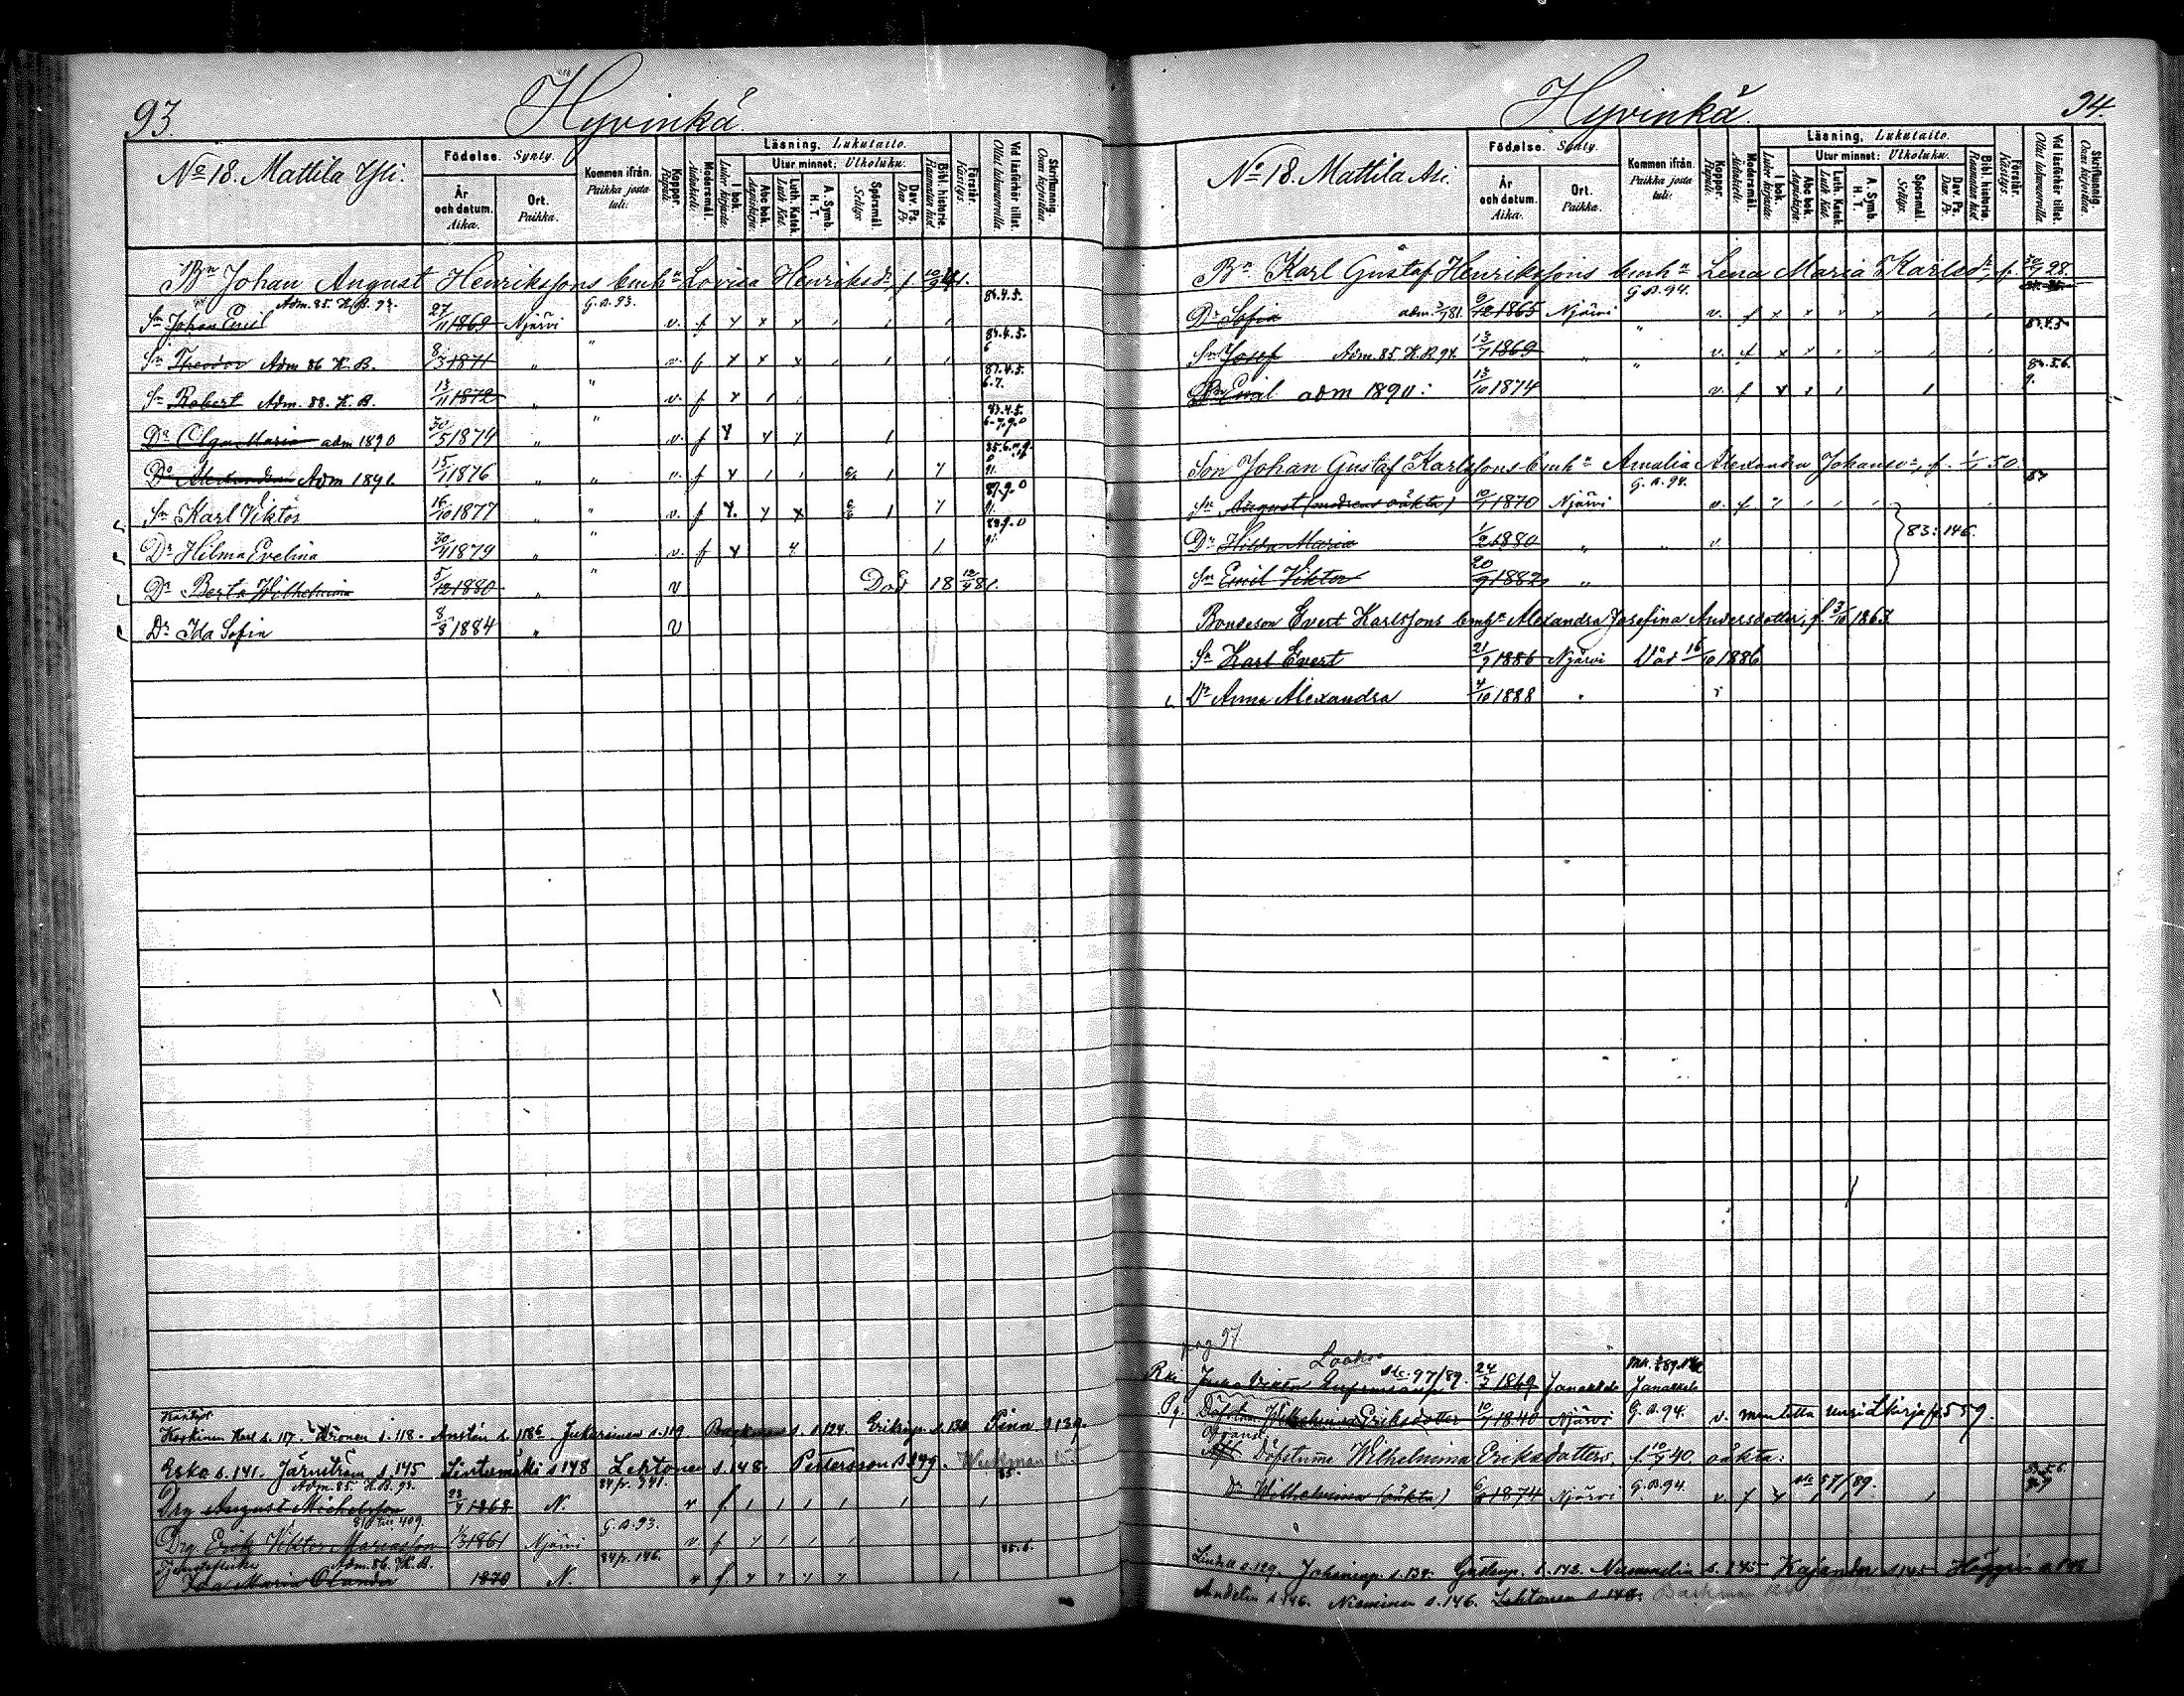 93.
Hyvinkä
No 18. Mattila Yli.
Födelse. Synty.
År och datum. Aika.
Ort. Paikka.
Kommen ifrån. Paikka josta tuli.
Koppor. Rupuli.
Modersmål. Äidinkieli.
Läsning. Lukutaito.
I bok. Lukee kirjasta.
Utur minnet: Ulkoluku.
Abc bok. Aapiskirja.
Luth. Katek. Luth. Kat.
A. Symb. H. T.
Spörsmål. Selitys.
Dav. Ps. Dav. Ps.
Bibl. historie. Raamatun hist.
Förstår. Käsitys.
Vid läsförhör tillst. Ollut lukuvuorolla.
Skriftkunnig. Osaa kirjoittaa.
Bn Johan August Henrikssons hemhn Lovisa Henriksdr f. 41.
Sn Johan Emil Adm. 85. K. B. 93. 27/11 1869 Njärvi G.B. 93. v. f 84.4.5.
Sn Theodor Adm 86 K. B. 8/3 1871 " " v. f 84.4.5. 6
Sn Robert Adm. 88. K. B. 13/11 1872 " " v. f 84.4.5. 6.7.
Dr Olga Maria adm 1890 30/5 1874 " " v. f
Dr Alexandra Adm 1891 15/7 1876 " " v. f
Sn Karl Viktor 16/10 1877 " " v. f 87.9.0 91.
Dr Hilma Evelina 30/4 1879 " " v. f 91.
Dr Berta Wilhelmina 5/12 1880 " " v Död 18 12/4 81.
Dr Ida Sofia 8/8 1884 " v
Koskinen Karl s. 117. s. 118. Anstén s. 118 Jukarinen s. 119 Backman s. 124. Eriksson s. 130 Finn s 139.
Eska s. 141. Järnström s. 145 Lintumäki s 148 Lehtonen s. 148. Pettersson s 149.
Drg August Michelsson Adm. 85. K. B. 93. 23/7 1868 N. 84 p. 341. v f 85.
Drg. Erik Viktor Mariasson 1861 Njärvi G. B. 93. v f
Ida Maria Olanda Adm. 86. K. B. 1870 N. 84 p. 146. v f 85.6.
94.
Hyvinkä
No 18. Mattila Ali.
Födelse. Synty.
År och datum. Aika.
Ort. Paikka.
Kommen ifrån. Paikka josta tuli.
Koppor. Rupuli.
Modersmål. Äidinkieli.
Läsning. Lukutaito.
I bok. Lukee kirjasta.
Utur minnet: Ulkoluku.
Abc bok. Aapiskirja.
Luth. Katek. Luth. Kat.
A. Symb. H. T.
Spörsmål. Selitys.
Dav. Ps. Dav. Ps.
Bibl. historia. Raamatun hist.
Förstår. Käsitys.
Vid läsförhör tillst. Ollut lukuvuorolla.
Skriftkunnig. Osaa kirjoittaa.
Bn Karl Gustaf Henrikssons hemhn Lena Maria Karlsdr f. 30/7 28.
Dr Sofia adm. 81. 9/12 1865 Njärvi G.B. 94. v. f
Sn Josef Adm. 85 K. B. 94. 13/7 1869 " " v. f 84.4.5
Sn Emil adm 1890: 13/10 1874 v. f 84.5.6. 9.
Son Johan Gustaf Karlssons hemhn Amalia Alexandra Johansdr, f. 1/1 50
Sn August (modrens oäkta) 10/7 1870 Njärvi G.B. 94. v. f
Dr Hilda Maria 1/2 1880 " " v. 83: 146.
Sn Emil Viktor 20/9 1882 "
Bondeson Evert Karlssons hemhn Alexandra Josefina Andersdotter, f. 3/10 1863
Sn Karl Evert 21/9 1886 Njärvi Död 16/10 1886
Dr Anna Alexandra 4/10 1888 " v
pag 97
Laakso s. 97/89. 24/7 1869 Janakkala Janakkala
Wilhelmina Eriksdotter 10/9 1840 Njärvi G.B. 94. v. p 559.
Wilhelmina Eriksdotters, f. 10/9 40. oäkta:
Dr Wilhelmina (oäkta) 1874 Njärvi G.B. 94. v. f 97/89.
Lindell s. 129. Johansson s. 134. Gustafsson s. 142. s. 145 Kajander s 145
Andelin s. 146. Nieminen s. 146. Lehtonen s. 148.